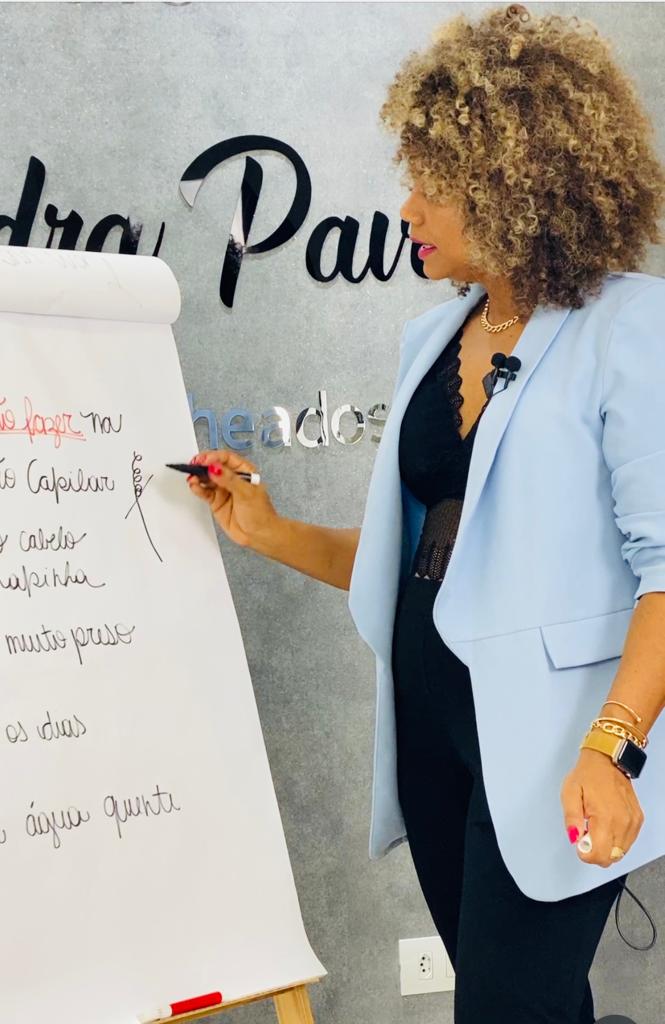 dra Pav
heados
ão fazer na
ão Capilar
o cabelo
hapinha
muito preso
os dias
água quente